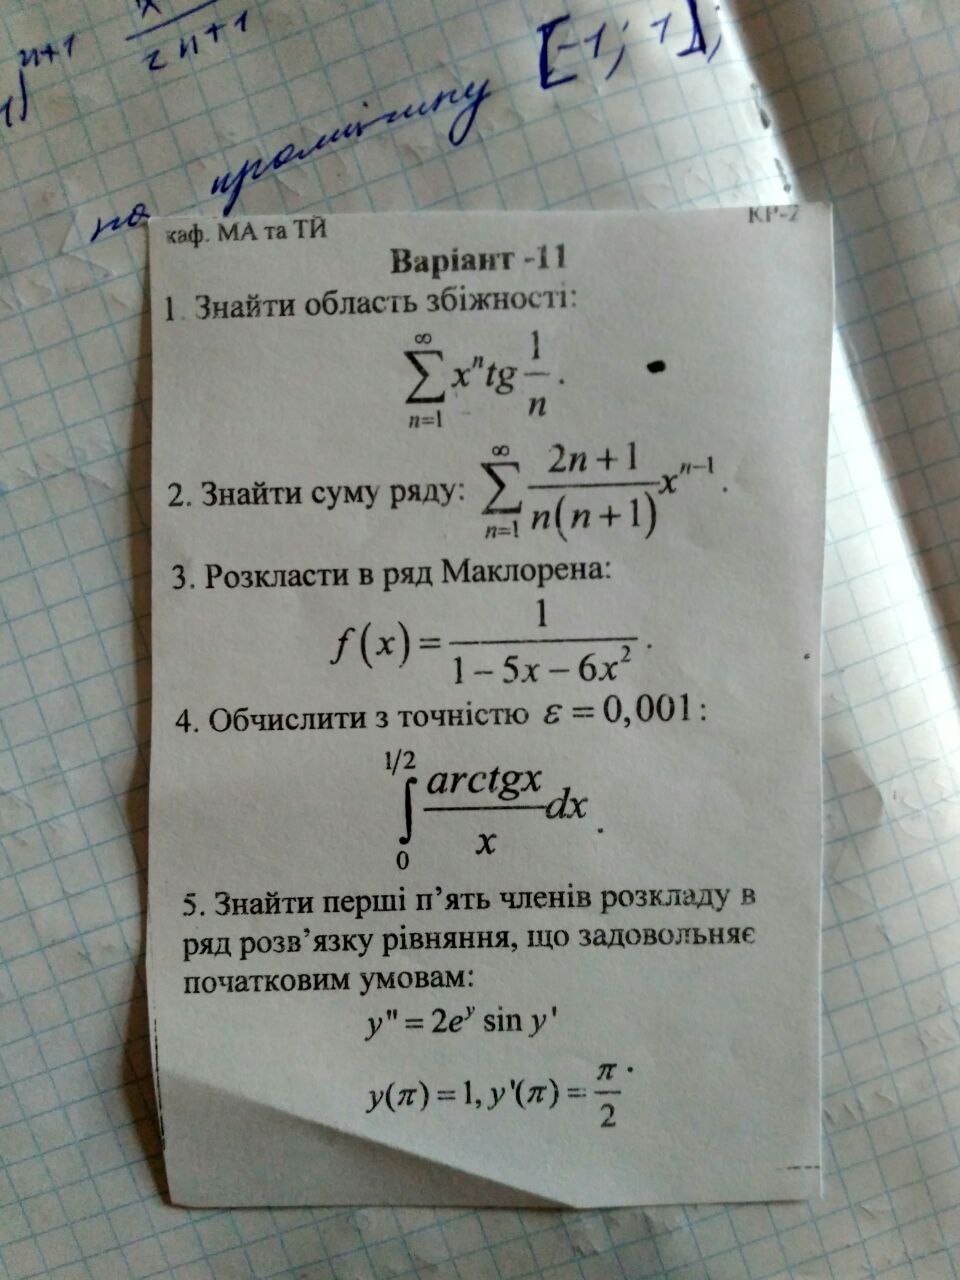 1)ⁿ⁺¹ x / 2n+1
на проміжку [-1; 1];
каф. МА та ТЙ КР-2
Варіант -11
1. Знайти область збіжності:
∑_{n=1}^{∞} xⁿ tg 1/n.
2. Знайти суму ряду: ∑_{n=1}^{∞} (2n+1)/(n(n+1)) x^{n-1}.
3. Розкласти в ряд Маклорена:
f(x) = 1/(1-5x-6x²).
4. Обчислити з точністю ε = 0,001:
∫_{0}^{1/2} arctgx/x dx.
5. Знайти перші п’ять членів розкладу в
ряд розв’язку рівняння, що задовольняє
початковим умовам:
y" = 2eʸ sin y'
y(π) = 1, y'(π) = π/2.